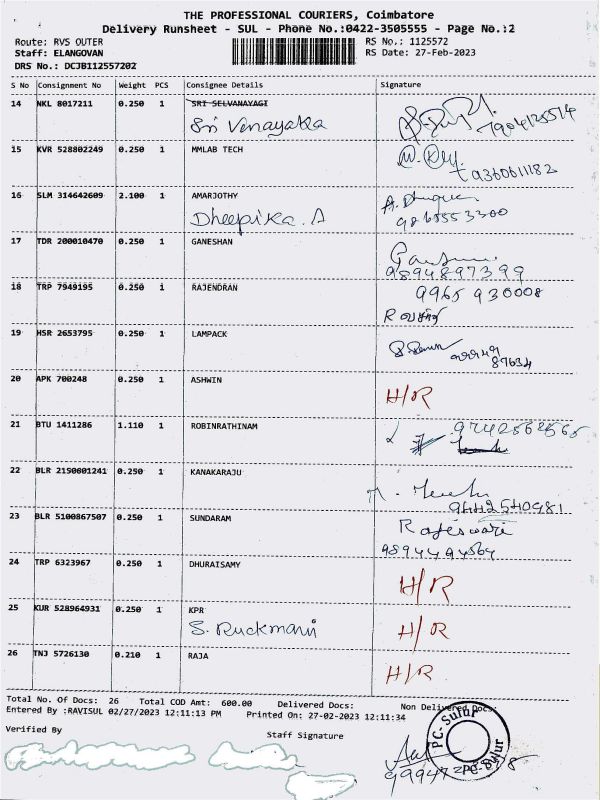 THE PROFESSIONAL COURIERS, Coimbatore
Delivery Runsheet - SUL - Phone No.:0422-3505555 - Page No.:2
Route: RVS OUTER
Staff: ELANGOVAN
DRS No.: DCJB112557202
RS No.: 1125572
RS Date: 27-Feb-2023
S No Consignment No Weight PCS Consignee Details Signature
14 NKL 8017211 0.250 1 SRI SELVANAYAGI
Sri Vinayakka
7904125574
15 KVR 528802249 0.250 1 MMLAB TECH
9360611182
16 SLM 314642609 2.100 1 AMARJOTHY
Dheepika. A
17 TDR 200010470 0.250 1 GANESHAN
9894897399
18 TRP 7949195 0.250 1 RAJENDRAN
9965 930008
19 HSR 2653795 0.250 1 LAMPACK
87634
20 APK 700248 0.250 1 ASHWIN
H/R
21 BTU 1411286 1.110 1 ROBINRATHINAM
9742562565
22 BLR 2190601241 0.250 1 KANAKARAJU
9442540981
23 BLR 5100867507 0.250 1 SUNDARAM
Rajeswari
9894494564
24 TRP 6323967 0.250 1 DHURAISAMY
H/R
25 KUR 528964931 0.250 1 KPR
S. Ruckmani H/R
26 TNJ 5726130 0.210 1 RAJA
H/R
Total No. Of Docs: 26 Total COD Amt: 600.00 Delivered Docs: Non Delivered Docs:
Entered By :RAVISUL 02/27/2023 12:11:13 PM Printed On: 27-02-2023 12:11:34
Verified By Staff Signature
PC-Sulur
PC-Sulur